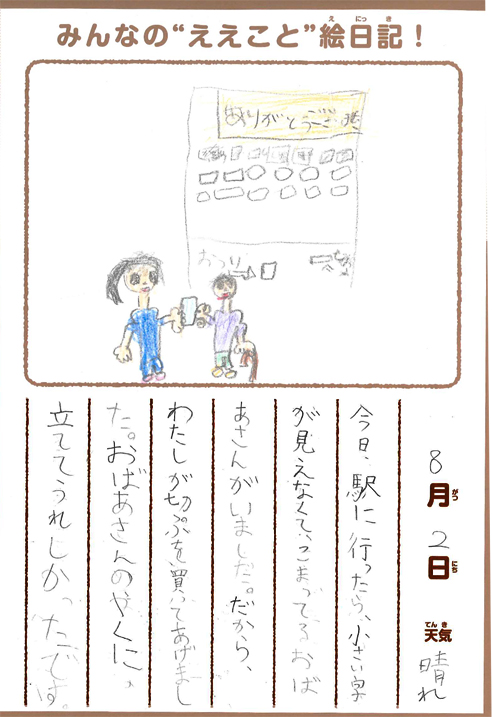 みんなの“ええこと”絵日記！
ありがとうござい
おつり
8月2日
天気 晴れ
今日、駅に行ったら、小さい字
が見えなくて、こまってるおば
あさんがいました。だから、
わたしが切ぷを買ってあげまし
た。おばあさんのやくに、
立ててうれしかったです。